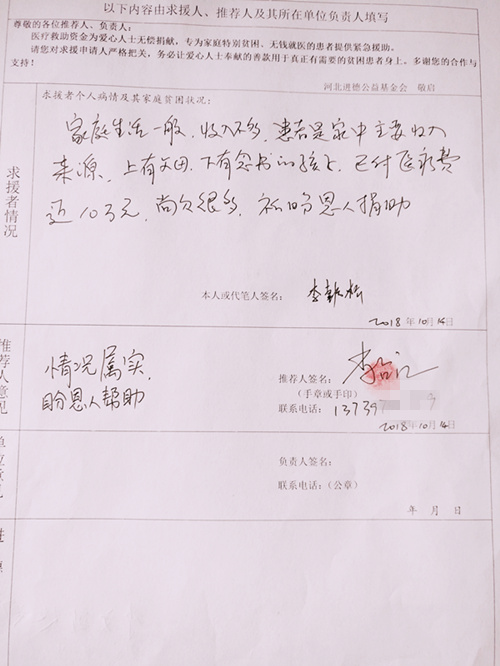 以下内容由求援人、推荐人及其所在单位负责人填写
尊敬的各位推荐人、负责人:
医疗救助资金为爱心人士无偿捐献,专为家庭特别贫困、无钱就医的患者提供紧急援助。
请您对求援申请人严格把关,务必让爱心人士奉献的善款用于真正有需要的贫困患者身上,多谢您的合作与
支持!
河北进德公益基金会 敬启
求援者情况
求援者个人病情及其家庭贫困状况:
家庭生活一般,收入不多,患者是家中主要收入
来源,上有父母,下有念书的孩子,已付医疗费
近10万元,尚欠很多,祈盼恩人捐助
本人或代笔人签名:
2018年10月14日
推荐人意见
情况属实,
盼恩人帮助
推荐人签名:
(手章或手印)
联系电话:13739
2018年10月14日
单位意见
负责人签名:
联系电话:(公章)
年 月 日
进